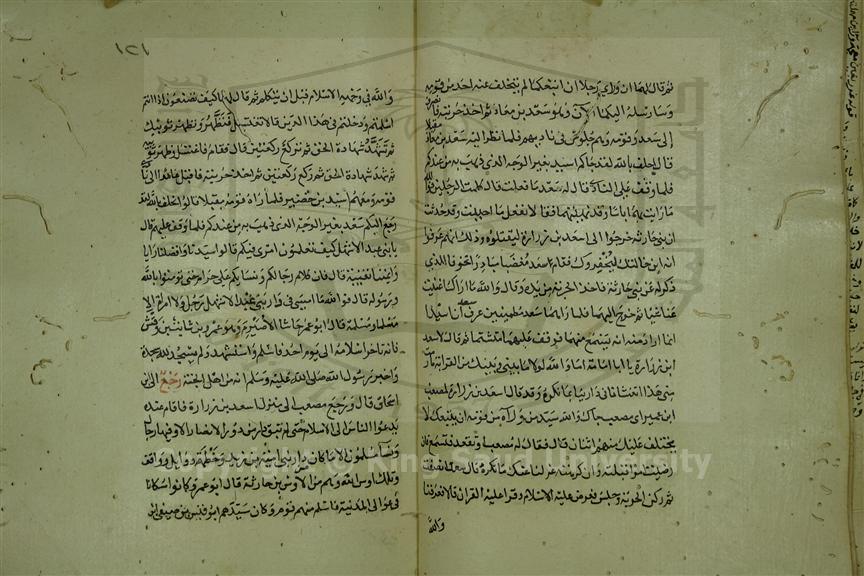 ثم قال لهما ان ورائي رجلا ان اتبعكما لم يتخلف عنه احد من قومه
وسارسله اليكما الآن وهو سعد بن معاذ ثم اخذ حربته فانصرف
الى سعد وقومه وهم جلوس في ناديهم فلما نظر اليه سعد بن معاذ مقبلا
قال احلف بالله لقد جاكم اسيد بغير الوجه الذي ذهب به من عندكم
فلما وقف على النادي قال له سعد ما فعلت قال كلمت الرجلين فوالله
ما رايت بهما باسا وقد نهيتهما فقالا نفعل ما احببت وقد حدثت
ان بني حارثة خرجوا الى اسعد بن زرارة ليقتلوه وذلك انهم عرفوا
انه ابن خالتك ليخفروك فقام سعد مغضبا مبادرا تخوفا للذي
ذكر له عن بني حارثة فاخذ الحربة من يده وقال والله ما اراك اغنيت
عنا شيا ثم خرج اليهما فلما راهما سعد مطمئنين عرف ان اسيدا
انما اراد منه ان يسمع منهما فوقف عليهما متشتما ثم قال لاسعد
ابن زرارة يا ابا امامة اما والله لولا ما بيني وبينك من القرابة ما رمت
مني هذا اتغشانا في دارينا بما نكره وقد قال اسعد بن زرارة لمصعب
ابن عمير اي مصعب جاك والله سيد من وراه من قومه ان يتبعك لا
يختلف عليك منهم اثنان قال فقال له مصعب او تقعد فتسمع فان
رضيت امرا قبلته وان كرهته عزلنا عنك ما تكره قال سعد انصفت
ثم ركز الحربة وجلس فعرض عليه الاسلام وقرا عليه القران قالا فعرفنا
والله
١٢١
والله في وجهه الاسلام قبل ان يتكلم ثم قال لهما كيف تصنعون اذا انتم
اسلمتم ودخلتم في هذا الدين قالا تغتسل فتطهر وتطهر ثوبيك
ثم تشهد شهادة الحق ثم تركع ركعتين قال فقام فاغتسل وطهر ثوبيه
ثم شهد شهادة الحق ثم ركع ركعتين ثم اخذ حربته فاقبل عامدا الى نادي
قومه ومعه اسيد بن حضير فلما راه قومه مقبلا قالوا نحلف بالله لقد
رجع اليكم سعد بغير الوجه الذي ذهب به من عندكم فلما وقف عليهم قال
يا بني عبد الاشهل كيف تعلمون امري فيكم قالوا سيدنا وافضلنا رايا
وايمننا نقيبة قال فان كلام رجالكم ونسايكم علي حرام حتى تومنوا بالله
ورسوله قال فوالله ما امسى في دار بني عبد الاشهل رجل ولا امراة الا
مسلما ومسلمة قال ابو عمر حاشا الاصيرم وهو عمرو بن ثابت بن وقش
فانه تاخر اسلامه الى يوم احد فاسلم واستشهد ولم يسجد لله سجدة
واخبر رسول الله صلى الله عليه وسلم انه من اهل الجنة رجع الى ابن
اسحاق قال ورجع مصعب الى منزل اسعد بن زرارة فاقام عنده
يدعوا الناس الى الاسلام حتى لم تبق دار من دور الانصار الا وفيها رجال
ونسا مسلمون الا ما كان من دار بني امية بن زيد وخطمة ووايل وواقف
وتلك اوس الله وهم من الاوس بن حارثة قال ابو عمر وكانوا سكانا
في عوالي المدينة فاسلم منهم قوم وكان سيدهم ابو قيس بن صيفي ابن
King Saud University